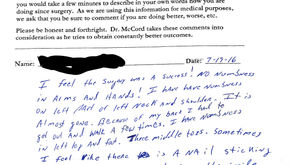 you would take a few minutes to describe in your own words how you are
doing since surgery. As we are using this information for medical purposes,
we ask that you be sure to comment if you are doing better, worse, etc.
Please be honest and forthright. Dr. McCord takes these comments into
consideration as he tries to obtain constantly better outcomes.
Name: Date: 7-19-16
I feel the surgery was a success. NO Numbness
in Arms and Hands! I have have Numbness
on left part of left Neck and shoulder. It is
Almost gone. Because of my back I had to
get out and walk A few times, I have Numbness
in left leg And foot. Three middle toes. Sometimes
I feel like there is A NAil sticking